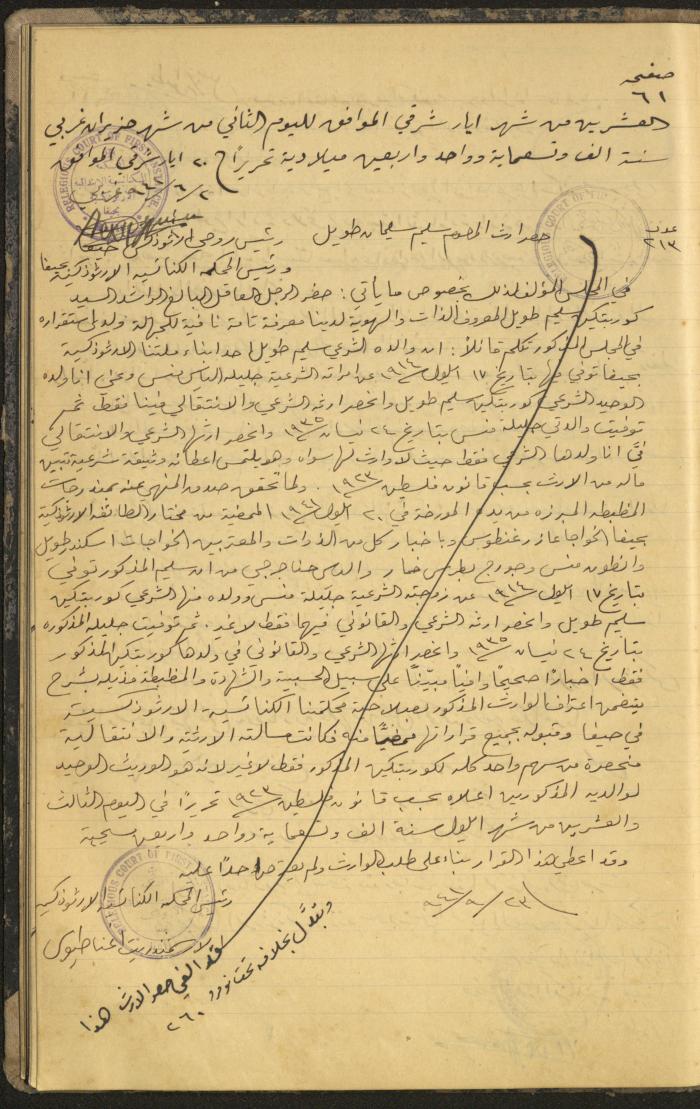 صفحه
٦١
العشرين من شهر ايار شرقي الموافق لليوم الثاني من شهر حزيران غربي
سنة الف وتسعماية وواحد واربعين ميلادية تحريرًا في ٢٠ ايار شرقي الموافق
RELEGIOUS COURT OF FIRST INSTANCE
عدد
٢١٣
حصر ارث المرحوم سليم سليمان طويل
رئيس روحي الارثوذكس حيفا
ورئيس المحكمه الكنائسيه الارثوذكسية بحيفا
في المجلس المؤلف لذلك بخصوص ما يأتي: حضر الرجل العاقل البالغ الراشد السيد
كوربتكين سليم طويل المعروف الذات والهوية لدينا معرفة تامة نافية للجهالة ولدى استقراره
في المجلس المذكور تكلم قائلاً: ان والده الشرعي سليم طويل احد ابناء ملتنا الارثوذكسية
بحيفا توفي بها بتاريخ ١٧ ايلول ١٩١٤ عن امرأته الشرعية جليله الياس منسى وعني انا ولده
الوحيد الشرعي كوربتكين سليم طويل وانحصر ارثه الشرعي والانتقالي فينا فقط ثم
توفيت والدتي جليلة منسى بتاريخ ٢٤ نيسان ١٩٣٥ وانحصر ارثها الشرعي والانتقالي
فيَّ انا ولدها الشرعي فقط حيث لا وارث لها سواه وهو يلتمس اعطائه وثيقة شرعية تبين
ماله من الارث بحسب قانون فلسطين ١٩٢٣. ولما تحقق صدق المنهى عنه بمندرجات
المظبطه المبرزه من يده المورخة في ٢٠ ايلول ١٩٤١ الممضية من مختار الطائفه الارثوذكسية
بحيفا الخواجا عازر غنطوس وباخبار كل من الذوات والمعتبرين الخواجات اسكندر طويل
وانطون منسى وجورج بطرس خمار والياس حنا جرجي من ان سليم المذكور توفي
بتاريخ ١٧ ايلول ١٩١٤ عن زوجته الشرعية جليلة منسى وولده منها الشرعي كوربتكين
سليم طويل وانحصر ارثه الشرعي والقانوني فيهما فقط لا غير. ثم توفيت جليله المذكوره
بتاريخ ٢٤ نيسان ١٩٣٥ وانحصر ارثها الشرعي والقانوني في ولدها كوربتكين المذكور
فقط اخبارًا صحيحًا وافيًا مبيّنًا على سبيل الحسبية والشهادة والمظبطة مذيله بشرح
يتضمن اعتراف الوارث المذكور بصلاحية محكمتنا الكنائسية الارثوذكسية
في حيفا وقبوله بجميع قراراتها ممضيًا منه فكانت مسألته الارثية والانتقالية
منحصرة من سهم واحد كله لكوربتكين المذكور فقط لا غير لانه هو الوريث الوحيد
لوالديه المذكورين اعلاه بحسب قانون فلسطين ١٩٢٣ تحريرًا في اليوم الثالث
والعشرين من شهر ايلول سنة الف وتسعماية وواحد واربعين مسيحية
وقد اعطي هذا القرار بناء على طلب الوارث ولم يعترض احدًا عليه
٢٣/٩/٩٤١
رئيس المحكمه الكنائسية الارثوذكسيه
الارشمندريت اغناطيوس
RELEGIOUS COURT OF FIRST
قد الغي حصر الارث هذا
وبتدل بخلافه تحت نمرو ٢٦٠